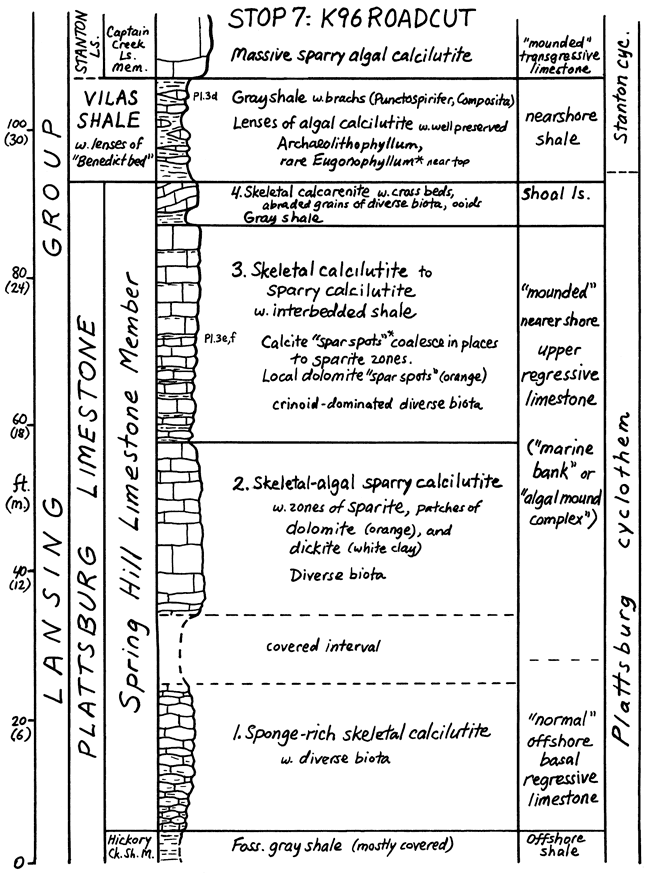 STOP 7: K96 ROADCUT
STANTON
Ls.
Captain
Creek
Ls.
mem.
Massive sparry algal calcilutite
"mounded"
transgressive
limestone
Stanton cyc.
VILAS
SHALE
w. lenses of
"Benedict bed"
Pl.3d
Gray shale w. brachs (Punctospirifer, Composita)
Lenses of algal calcilutite w. well preserved
Archaeolithophyllum,
rare Eugonophyllum* near top
nearshore
shale
4. Skeletal calcarenite w. cross beds,
abraded grains of diverse biota, ooids
Gray shale
Shoal ls.
3. Skeletal calcilutite to
sparry calcilutite
w. interbedded shale
Pl.3e,f
Calcite "spar spots"* coalesce in places
to sparite zones.
Local dolomite "spar spots" (orange)
crinoid-dominated diverse biota
"mounded"
nearer shore
upper
regressive
limestone
("marine
bank" or
"algal mound
complex")
2. Skeletal-algal sparry calcilutite
w. zones of sparite, patches of
dolomite (orange), and
dickite (white clay)
Diverse biota
covered interval
1. Sponge-rich skeletal calcilutite
w. diverse biota
"normal"
offshore
basal
regressive
limestone
Hickory
Ck. Sh. M.
Foss. gray shale (mostly covered)
Offshore
shale
LANSING GROUP
PLATTSBURG LIMESTONE
Spring Hill Limestone Member
Plattsburg cyclothem
100
(30)
80
(24)
60
(18)
ft.
(m.)
40
(12)
20
(6)
0